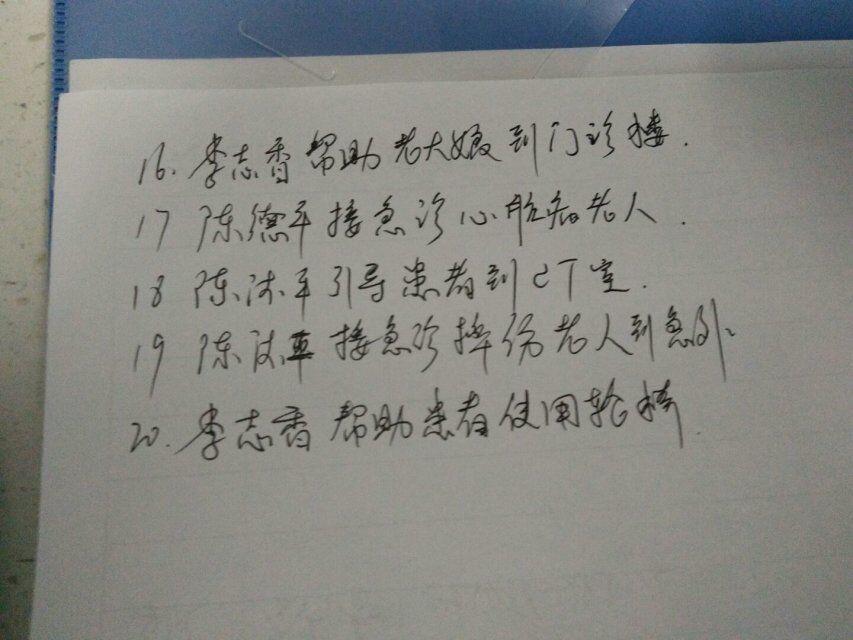 16. 李志香帮助老大娘到门诊楼.
17 陈德平接急诊心脏病老人.
18 陈沐平引导患者到CT室.
19 陈沐平接急诊摔伤老人到急外.
20. 李志香帮助患者使用轮椅.